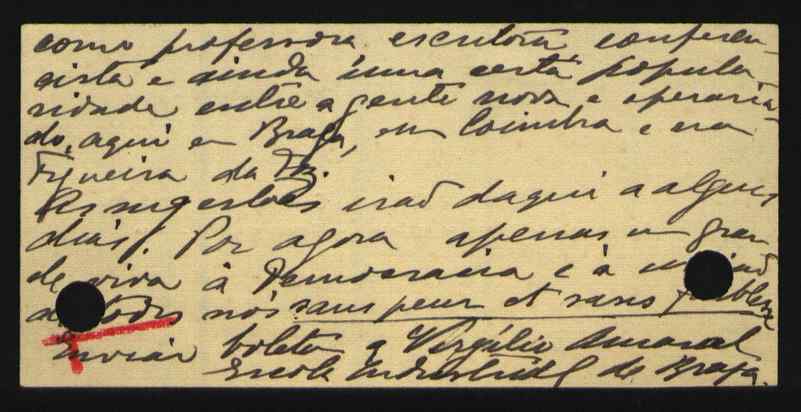 como professora escritora conferen-
sista e ainda numa certa popula-
ridade entre a gente nova e operaria-
do, aqui em Braga, em Coimbra e na
Figueira da Foz.
As sugestões irão daqui a alguns
dias. Por agora apenas um gran-
de viva à Democracia e à
de todos nós sans peur et sans faiblesse
Enviar boletim a Virgílio Amaral
Escola Industrial de Braga.